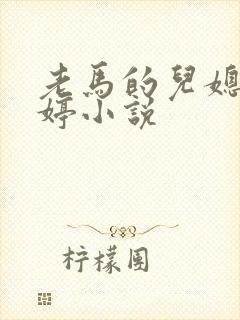 老馬的兒媳
婷小說
柠檬園